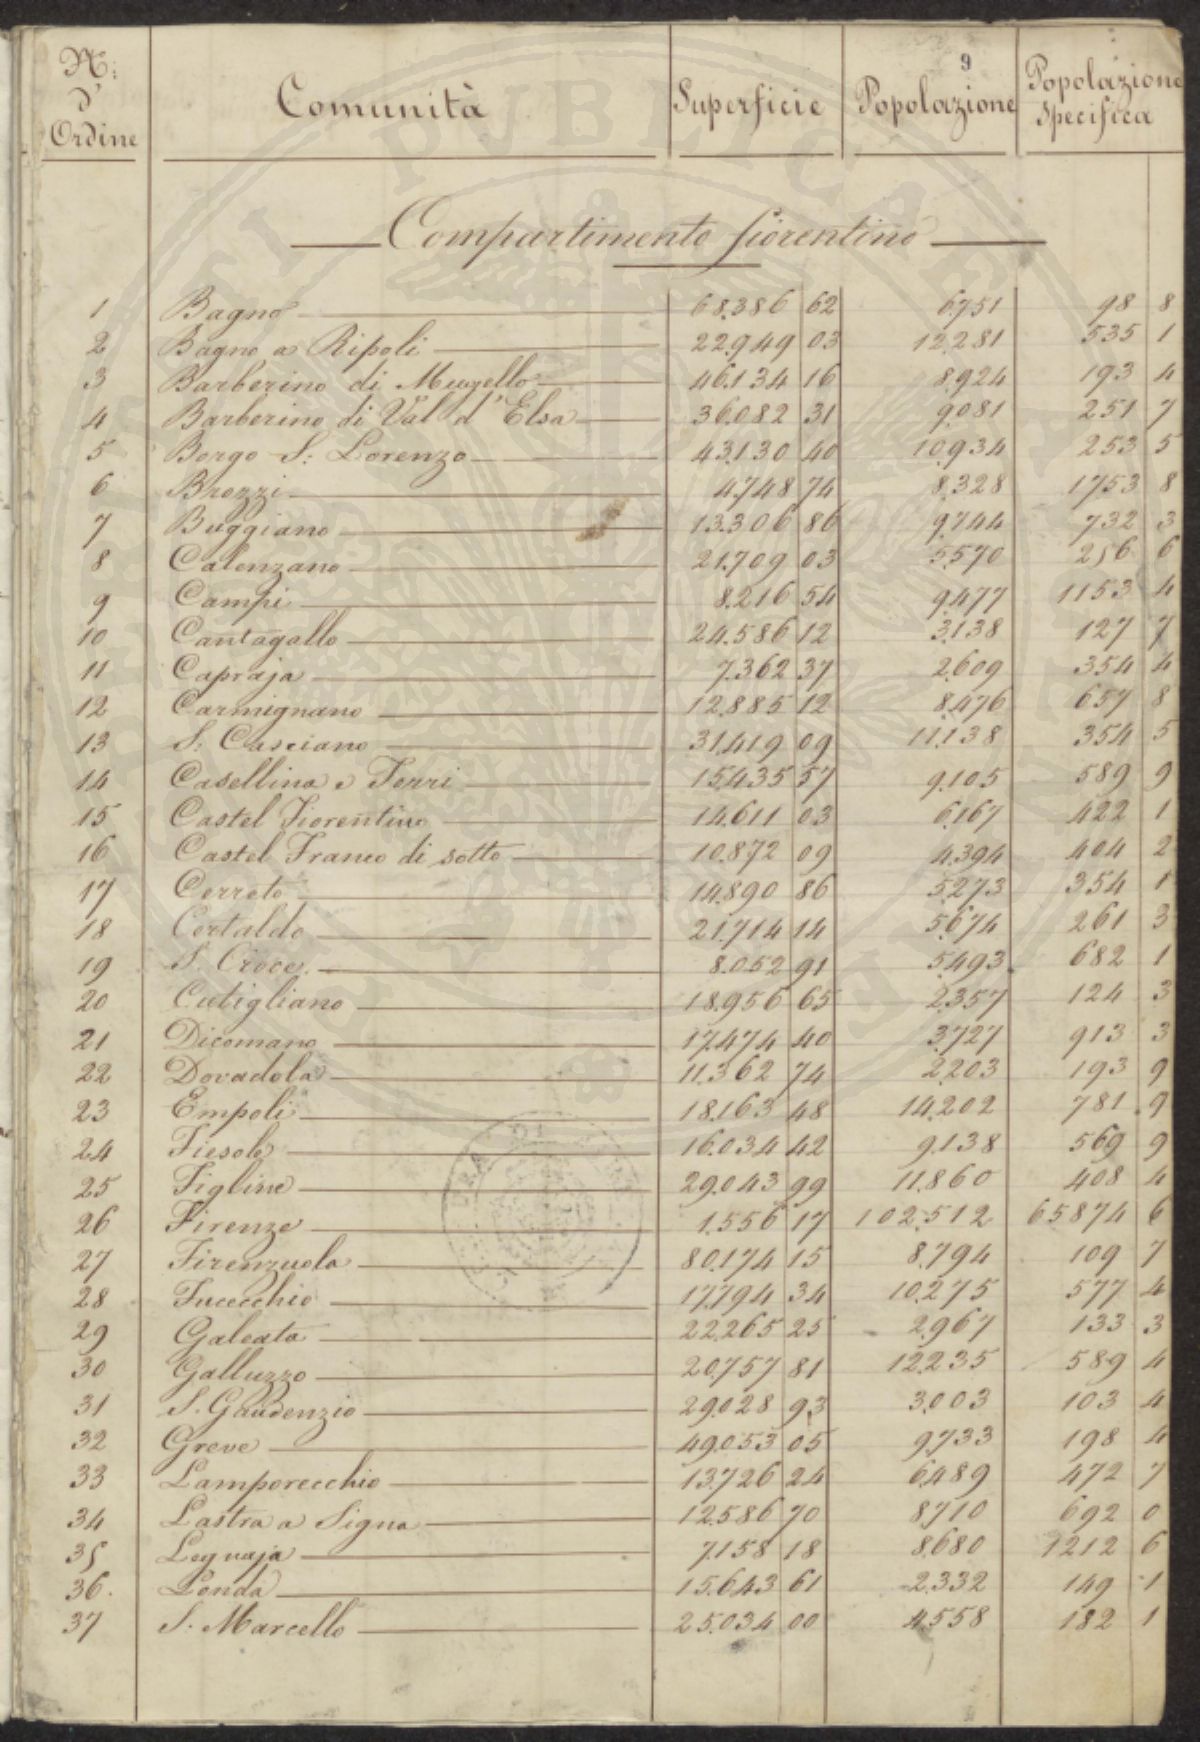 9
N.º d' Ordine | Comunità | Superficie | Popolazione | Popolazione specifica
Compartimento fiorentino
1 Bagno 68.386 62 6.751 98 8
2 Bagno a Ripoli 22.949 03 12.281 535 1
3 Barberino di Mugello 46.134 16 8.924 193 4
4 Barberino di Val d'Elsa 36.082 31 9.081 251 7
5 Borgo S: Lorenzo 43.130 40 10.934 253 5
6 Brozzi 4.748 74 8.328 1753 8
7 Buggiano 13.306 86 9.744 732 3
8 Calenzano 21.709 03 5.570 256 6
9 Campi 8.216 54 9.477 1153 4
10 Cantagallo 24.586 12 3.138 127 7
11 Capraja 7.362 37 2.609 354 4
12 Carmignano 12.885 12 8.476 657 8
13 S: Casciano 31.419 09 11.138 354 5
14 Casellina e Torri 15.435 57 9.105 589 9
15 Castel Fiorentino 14.611 03 6.167 422 1
16 Castel Franco di sotto 10.872 09 4.394 404 2
17 Cerreto 14.890 86 5.273 354 1
18 Certaldo 21.714 14 5.674 261 3
19 S. Croce 8.052 91 5.493 682 1
20 Cutigliano 18.956 65 2.357 124 3
21 Dicomano 17.474 40 3.727 913 3
22 Dovadola 11.362 74 2.203 193 9
23 Empoli 18.163 48 14.202 781 9
24 Fiesole 16.034 42 9.138 569 9
25 Figline 29.043 99 11.860 408 4
26 Firenze 1.556 17 102.512 65874 6
27 Firenzuola 80.174 15 8.794 109 7
28 Fucecchio 17.794 34 10.275 577 4
29 Galeata 22.265 25 2.967 133 3
30 Galluzzo 20.757 81 12.235 589 4
31 S. Gaudenzio 29.028 93 3.003 103 4
32 Greve 49.053 05 9.733 198 4
33 Lamporecchio 13.726 24 6.489 472 7
34 Lastra a Signa 12.586 70 8.710 692 0
35 Legnaja 7.158 18 8.680 1212 6
36. Londa 15.643 61 2.332 149 1
37 S. Marcello 25.034 00 4.558 182 1